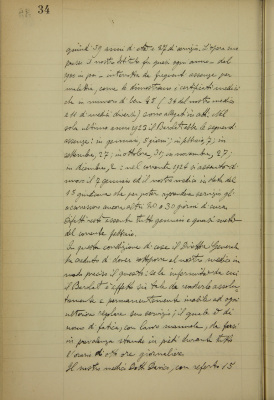 34
quindi 39 anni di età e 27 di servizio. L'opera sua
presso il nostro Istituto fu quasi ogni anno - dal
1920 in poi - interrotta da frequenti assenze per
malattia, come lo dimostrano i certificati medici
che in numero di ben 42 (del nostro medico
e di medici diversi) sono allegati in atti. Nel
solo ultimo anno 1923 il Bardotti ebbe le seguenti
assenze: in gennaio, 3 giorni; in febbraio, 7; in
settembre, 27; in ottobre, 31; in novembre, 27;
in dicembre, 2: nel corrente 1924 si assentò di
nuovo il 2 gennaio ed il nostro medico in data del
13 giudicava che per poter riprendere servizio gli
occorressero ancora altri 20 o 30 giorni di cura.
Difatti restò assente tutto gennaio e quasi metà
del corrente febbraio.
In questa condizione di cose il Direttore Generale
ha creduto di dover sottoporre al nostro medico in
modo preciso il quesito: se le infermità da cui
il Bardotti è affetto sia tale da renderlo assolu-
tamente e permanentemente inabile ad ogni
ulteriore regolare suo servizio; il quale è di
uomo di fatica, con lavoro manuale, da farsi
in prevalenza stando in piedi durante tutto
l'orario di otto ore giornaliere.
Il nostro medico Dott. con referto 15